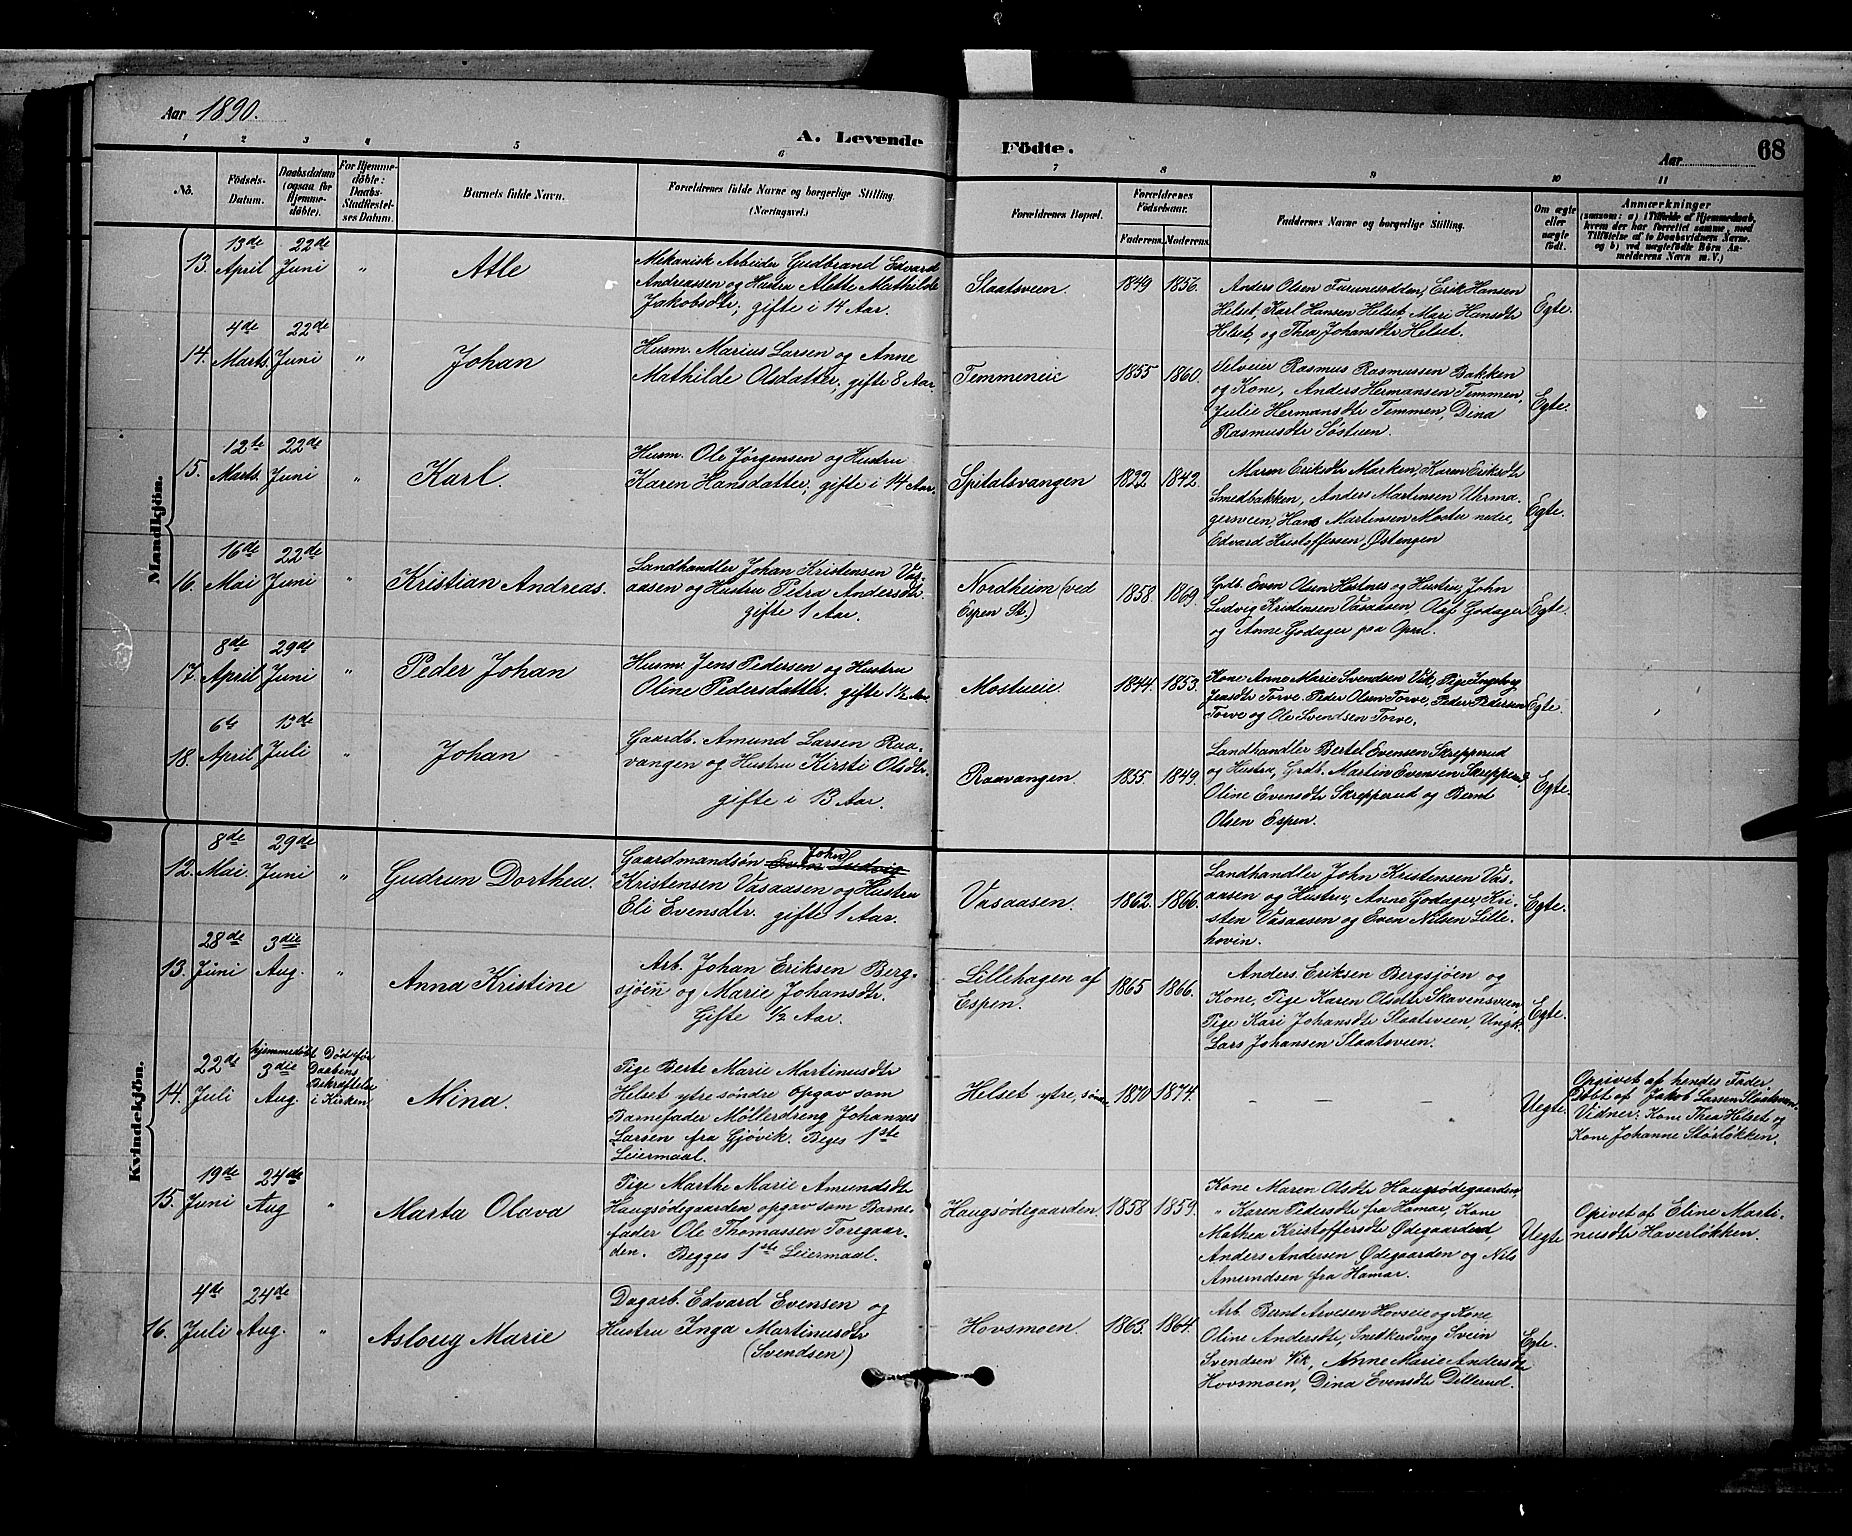 Aar 1890.
A. Levende Födte.
Aar 68
1 2 3 4 5 6 7 8 9 10 11
No.
Födsels-
Datum.
Daabsdatum
(ogsaa for
Hjemme-
döbte).
For Hjemme-
döbte:
Daabs-
Stadfæstel-
ses Datum.
Barnets fulde Navn.
Forældrenes fulde Navne og borgerlige Stilling
(Næringsvei.)
Forældrenes Bopæl.
Forældrenes
Födselsaar.
Faderens. Moderens.
Faddernes Navne og borgerlige Stilling.
Om ægte
eller
uægte
født.
Anmærkninger
(saasom: a) i Tilfælde af Hjemmedaab,
hvem der har forrettet samme, med
Tilföielse af to Daabsvidners Navne.
og b) ved uægtefödte Börn An-
melderens Navn m. V.)
Mandkjön.
13.
13de
April
22de
Juni
"
Atle
Mekanisk Arbeider Gudbrand Edvard
Andreassen og Hustru Alette Mathilde
Jakobsdtr, gifte i 14 Aar.
Slaatsveen.
1849
1856.
Anders Olsen Furunesodden, Erik Hansen
Helset, Karl Hansen Helset, Mari Hansdtr
Helset, og Thea Johansdtr Helset.
Egte.
14.
4de
Marts.
22de
Juni
"
Johan
Husm. Marius Larsen og Anne
Mathilde Olsdatter, gifte 8 Aar.
Temmeneie
1855
1860.
Selveier Rasmus Rasmussen Bakken
og Kone, Anders Hermansen Temmen,
Julie Hermansdtr Temmen, Dina
Rasmusdtr Söstuen.
Egte.
15.
12te
Marts.
22de
Juni
"
Karl
Husm. Ole Jörgensen og Hustru
Karen Hansdatter, gifte i 14 Aar.
Spitalsvangen
1822
1842.
Maren Eriksdtr Marken, Karen Eriksdtr
Smedbakken, Anders Martinsen Uhrma-
gersveen, Hans Martensen Moster nedre,
Edvard Kristoffersen Östengen
Egte.
16.
16de
Mai
22de
Juni
"
Kristian Andreas.
Landhandler Johan Kristensen Vas-
aasen og Hustru Petra Andersdtr.
gifte 1 Aar.
Nordheim (ved
Espen St.)
1858.
1869.
Grdb. Even Olsen Hestnes og Hustru, John
Ludvig Kristensen Vasaasen, Olaf Godager
og Anne Godager paa Opal.
Egte.
17.
8de
April
29de
Juni
"
Peder Johan
Husm. Jens Pedersen og Hustru
Oline Pedersdatter. gifte 1½ Aar.
Mostueie.
1844.
1853.
Kone Anne Marie Svendsen Vik, Pige Ingeborg
Jensdtr Torve, Peder Olsen Torve, Peder Pedersen
Torve og Ole Svendsen Torve.
Egte.
18.
6te
April
13de
Juli
"
Johan
Gaardb. Amund Larsen Raa-
vangen og Hustru Kirsti Olsdtr.
gifte i 13 Aar.
Raavangen.
1855.
1849.
Landhandler Bertel Evensen Skrepperud
og Hustru, Grdb. Martin Evensen Skrepperud
Oline Evensdtr Skrepperud og Bernt
Olsen Espen.
Egte.
Kvindekjön.
12.
8de
Mai.
29de
Juni
"
Gudrun Dorthea.
Gaardmandsön John Ludvig
Kristensen Vasaasen og Hustru
Eli Evensdtr. gifte 1 Aar.
Vasaasen.
1862.
1866.
Landhandler John Kristensen Vas-
aasen og Hustru, Anne Godager, Kri-
sten Vasaasen og Even Nilsen Lille-
hovin.
Egte.
13.
28de
Juni
3die
Aug.
"
Anna Kristine
Arb. Johan Eriksen Berg-
sjöen og Marie Johansdtr.
Gifte ½ Aar.
Lillehagen af
Espen.
1865
1866.
Anders Eriksen Bergsjöen og
Kone, Pige Karen Olsdtr Skavensveen
Pige Kari Johansdtr Slaatsveen, Ungk.
Lars Johansen Slaatsveen.
Egte.
14.
22de
Juli
hjemmedöbt
3die
Aug.
Död för
Daabens
Bekræftelse
i Kirken
Mina.
Pige Berte Marie Martinusdtr
Helset ytre söndre opgav som
Barnefader Möllerdreng Johannes
Larsen fra Gjövik. Beges 1ste
Leiermaal.
Helset ytre, söndre
1870
1874.
— — — —
Uegte
Opgivet af hendes Fader.
Döbt af Jakob Larsen Slaatsveen.
Vidner: Kone Thea Helset og
Kone Johanne Störlökken.
15.
19de
Juni
24de
Aug
"
Marta Olava
Pige Marthe Marie Amundsdtr
Haugsödegaarden opgav som Barne-
fader Ole Thomassen Toregaar-
den. Begges 1ste Leiermaal.
Haugsödegaarden.
1858
1859.
Kone Maren Olsdtr Haugsödegaarden
" Karen Pedersdtr fra Hamar, Kone
Mathea Kristoffersdtr Ödegaarden
Anders Andersen Ödegaarden og Nils
Amundsen fra Hamar.
Uegte
Opivet af Eline Marti-
nusdtr Haverlökken.
16.
4de
Juli
24de
Aug.
"
Aslaug Marie
Dagarb. Edvard Evensen og
Hustru Inga Martinusdtr
(Svendsen)
Hovsmoen.
1863.
1864.
Arb. Bernt Arvesen Hovseie og Kone
Oline Andersdtr, Snedkerdreng Svein
Svendsen Vik, Anne Marie Andersdtr
Hovsmoen, Dina Evensdtr Dillerud.
Egte.